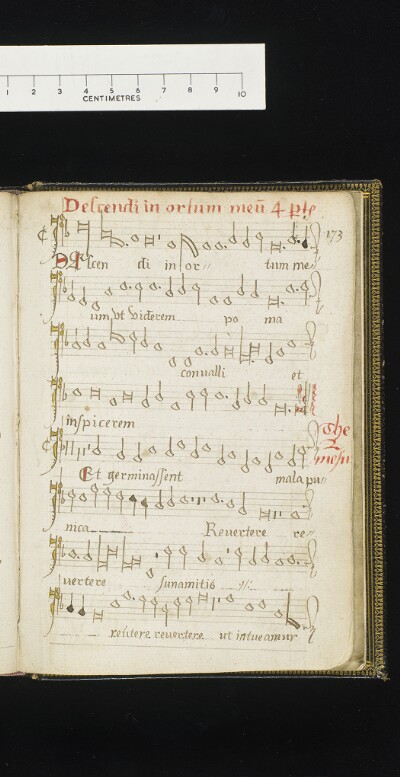 1 2 3 4 5 6 7 8 9 10
CENTIMETRES
Descendi in ortum meū 4 pts
173
Descen di in or tum me
um Vt Viderem po ma
convalli et
inspicerem
The
mesn
Et germinassent mala pu
nica Revertere re
vertere sunamitis
revtere revertere ut intueamur